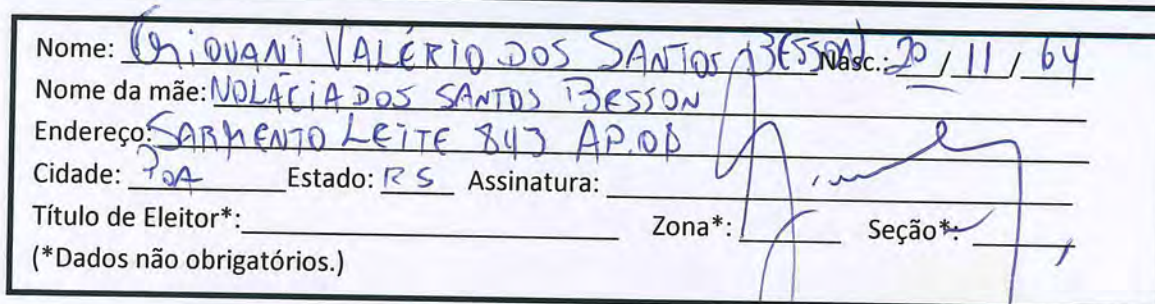 Nome: GIOVANI VALÉRIO DOS SANTOS BESSON Nasc.: 20 / 11 / 64
Nome da mãe: NOLÁCIA DOS SANTOS BESSON
Endereço: SARMENTO LEITE 843 AP.
Cidade: POA Estado: RS Assinatura:
Título de Eleitor*: Zona*: Seção*:
(*Dados não obrigatórios.)